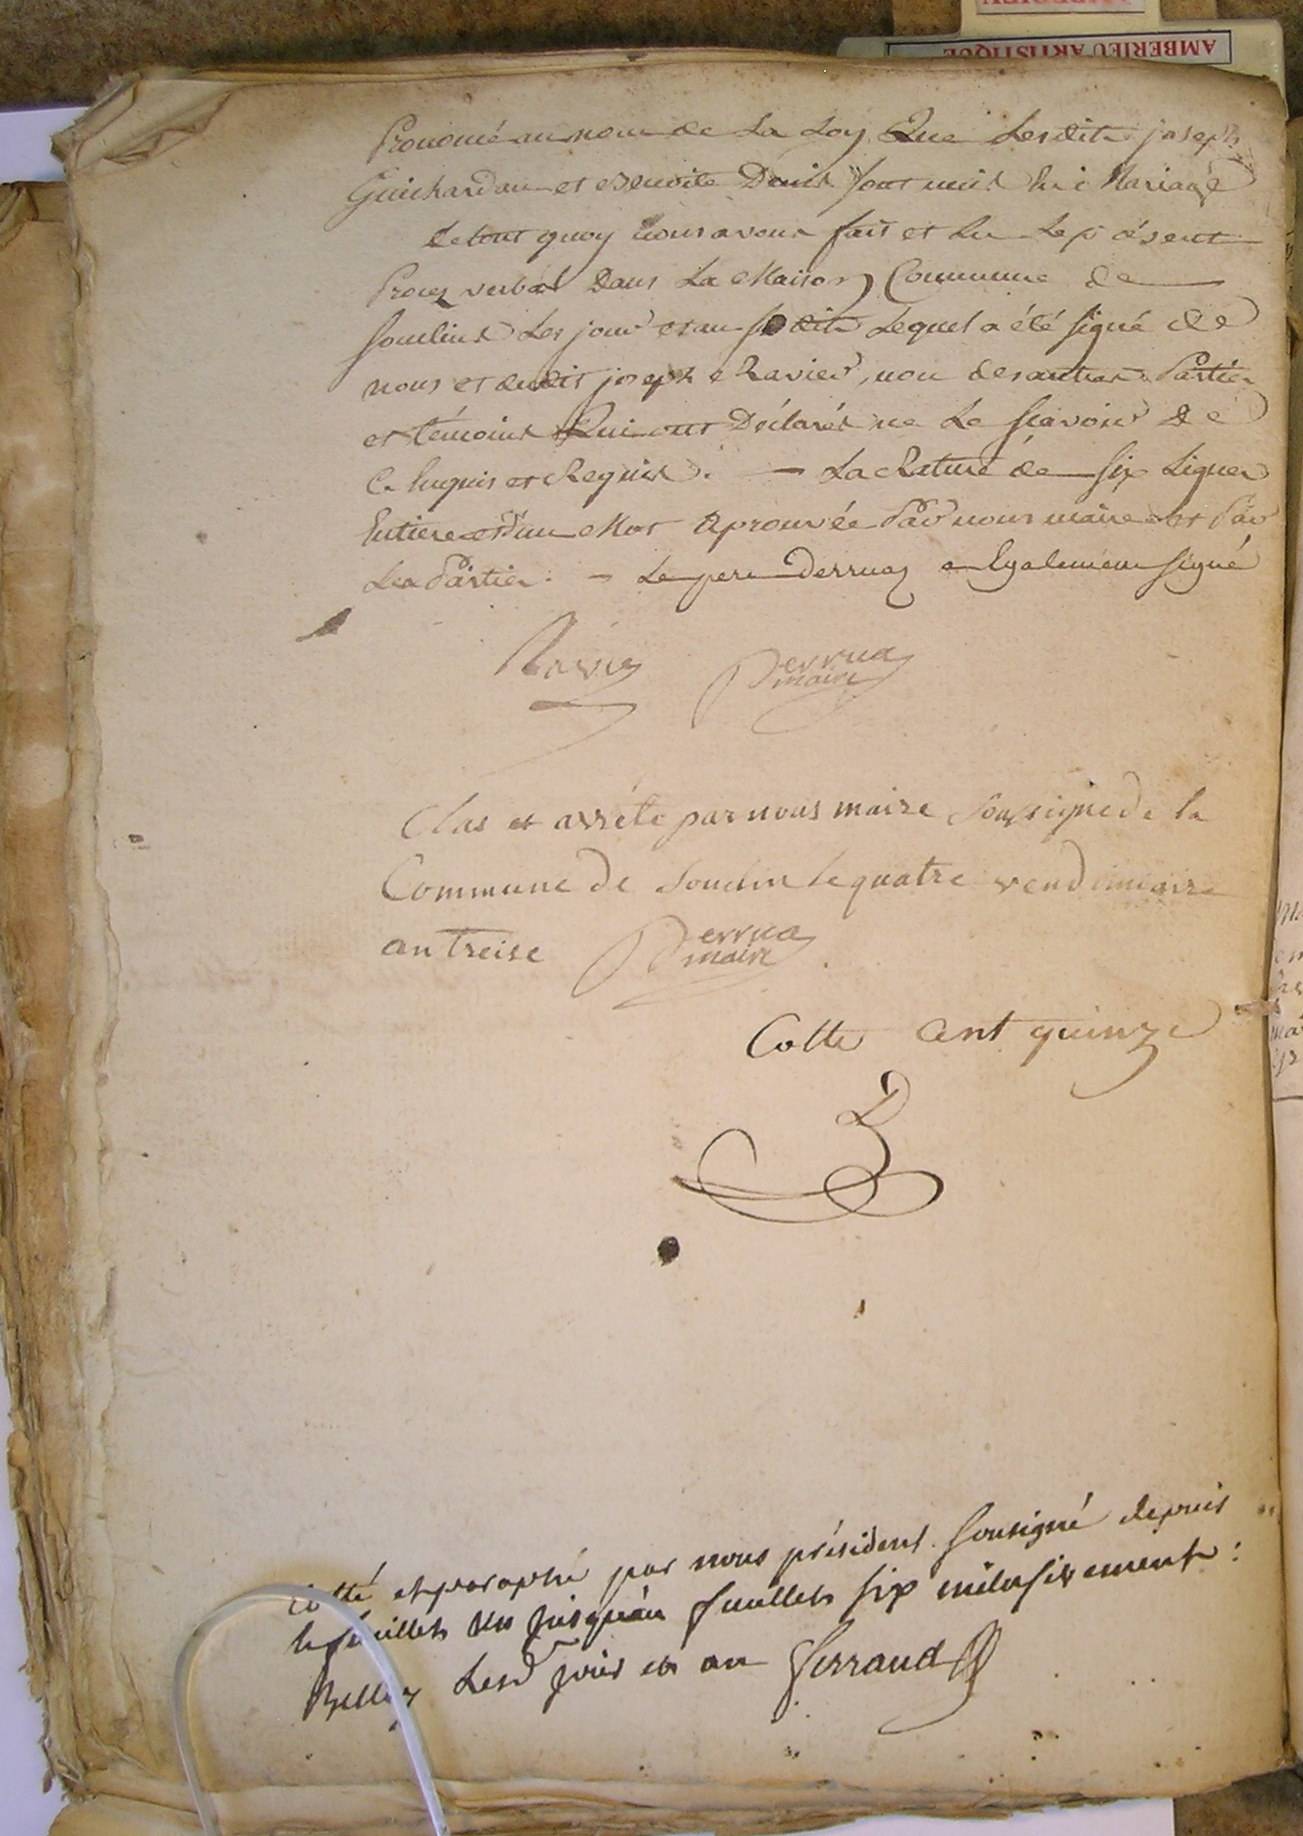 AMBERIEU ARTISTIQUE
Prononcé au nom de La Loy Que Lesdits joseph
Guichardan et Benoite Denis sont unis En Mariage
de tout quoy nous avons fait et Lu Le présent
Procez verbal Dans La Maison Commune de
Souclins Les jour et an sudits Lequel a été signé de
nous et dudit joseph Ravier, non des autres Parties
et témoins Qui ont Déclarés ne Le scavoir De
Ce Enquis et Requis. — La Rature de six Lignes
Entiere et d'un Mot Aprouvée Par nous maire et Par
Les Parties. — Le pere Derruaz a Egalement signé
Ravier Perruaz
maire
Clos et arrêté par nous maire soussigné de la
Commune de Souclin le quatre vendemiaire
an treise Perruaz
maire
Cotte Cent quinze
Cotté et paraphé par nous président. sousigné depuis
le feuillets un jusqu'au feuillets six inclusivement :
Belley Lesd jour et an Ferraud